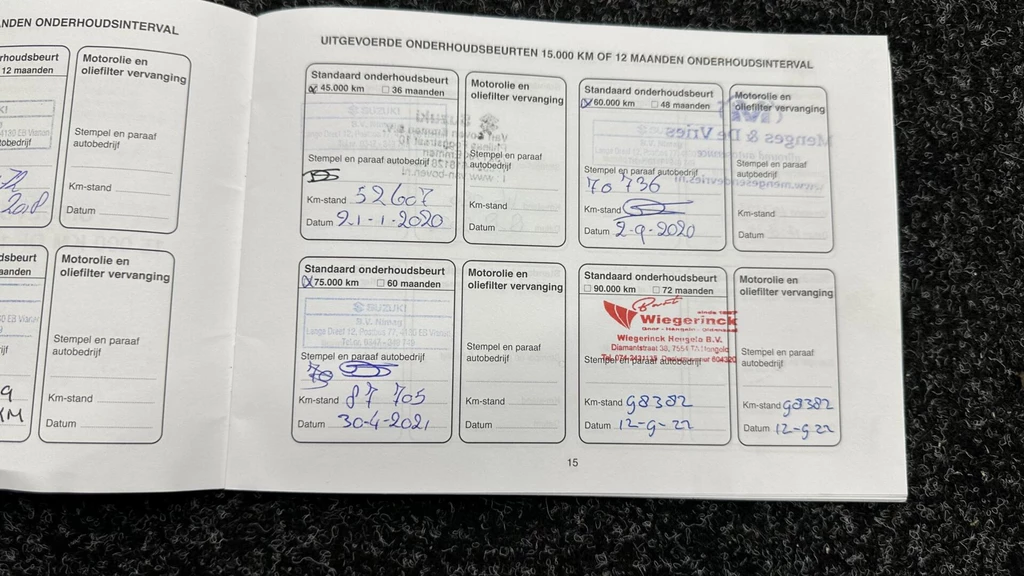 ANDEN ONDERHOUDSINTERVAL
rhoudsbeurt
12 maanden
Motorolie en
oliefilter vervanging
Stempel en paraaf
autobedrijf
Km-stand
Datum
2018
dsbeurt
aanden
Motorolie en
oliefilter vervanging
Stempel en paraaf
autobedrijf
Km-stand
Datum
KM
UITGEVOERDE ONDERHOUDSBEURTEN 15.000 KM OF 12 MAANDEN ONDERHOUDSINTERVAL
Standaard onderhoudsbeurt
45.000 km 36 maanden
SUZUKI
Stempel en paraaf autobedrijf
Km-stand 52607
Datum 21-1-2020
Motorolie en
oliefilter vervanging
Stempel en paraaf
autobedrijf
Km-stand
Datum
Standaard onderhoudsbeurt
60.000 km 48 maanden
Stempel en paraaf autobedrijf
70 736
Km-stand
Datum 2-9-2020
Motorolie en
oliefilter vervanging
Menges & De Vries
Stempel en paraaf
autobedrijf
Km-stand
Datum
Standaard onderhoudsbeurt
75.000 km 60 maanden
SUZUKI
B.V. Nimag
Stempel en paraaf autobedrijf
Km-stand 87 705
Datum 30-4-2021
Motorolie en
oliefilter vervanging
Stempel en paraaf
autobedrijf
Km-stand
Datum
Standaard onderhoudsbeurt
90.000 km 72 maanden
sinds
Wiegerinck
Wiegerinck Hengelo B.V.
Diamantstraat 38, 7554 TA Hengelo
Stempel en paraaf autobedrijf
Km-stand 98382
Datum 12-9-22
Motorolie en
oliefilter vervanging
Stempel en paraaf
autobedrijf
Km-stand 98382
Datum 12-9-22
15